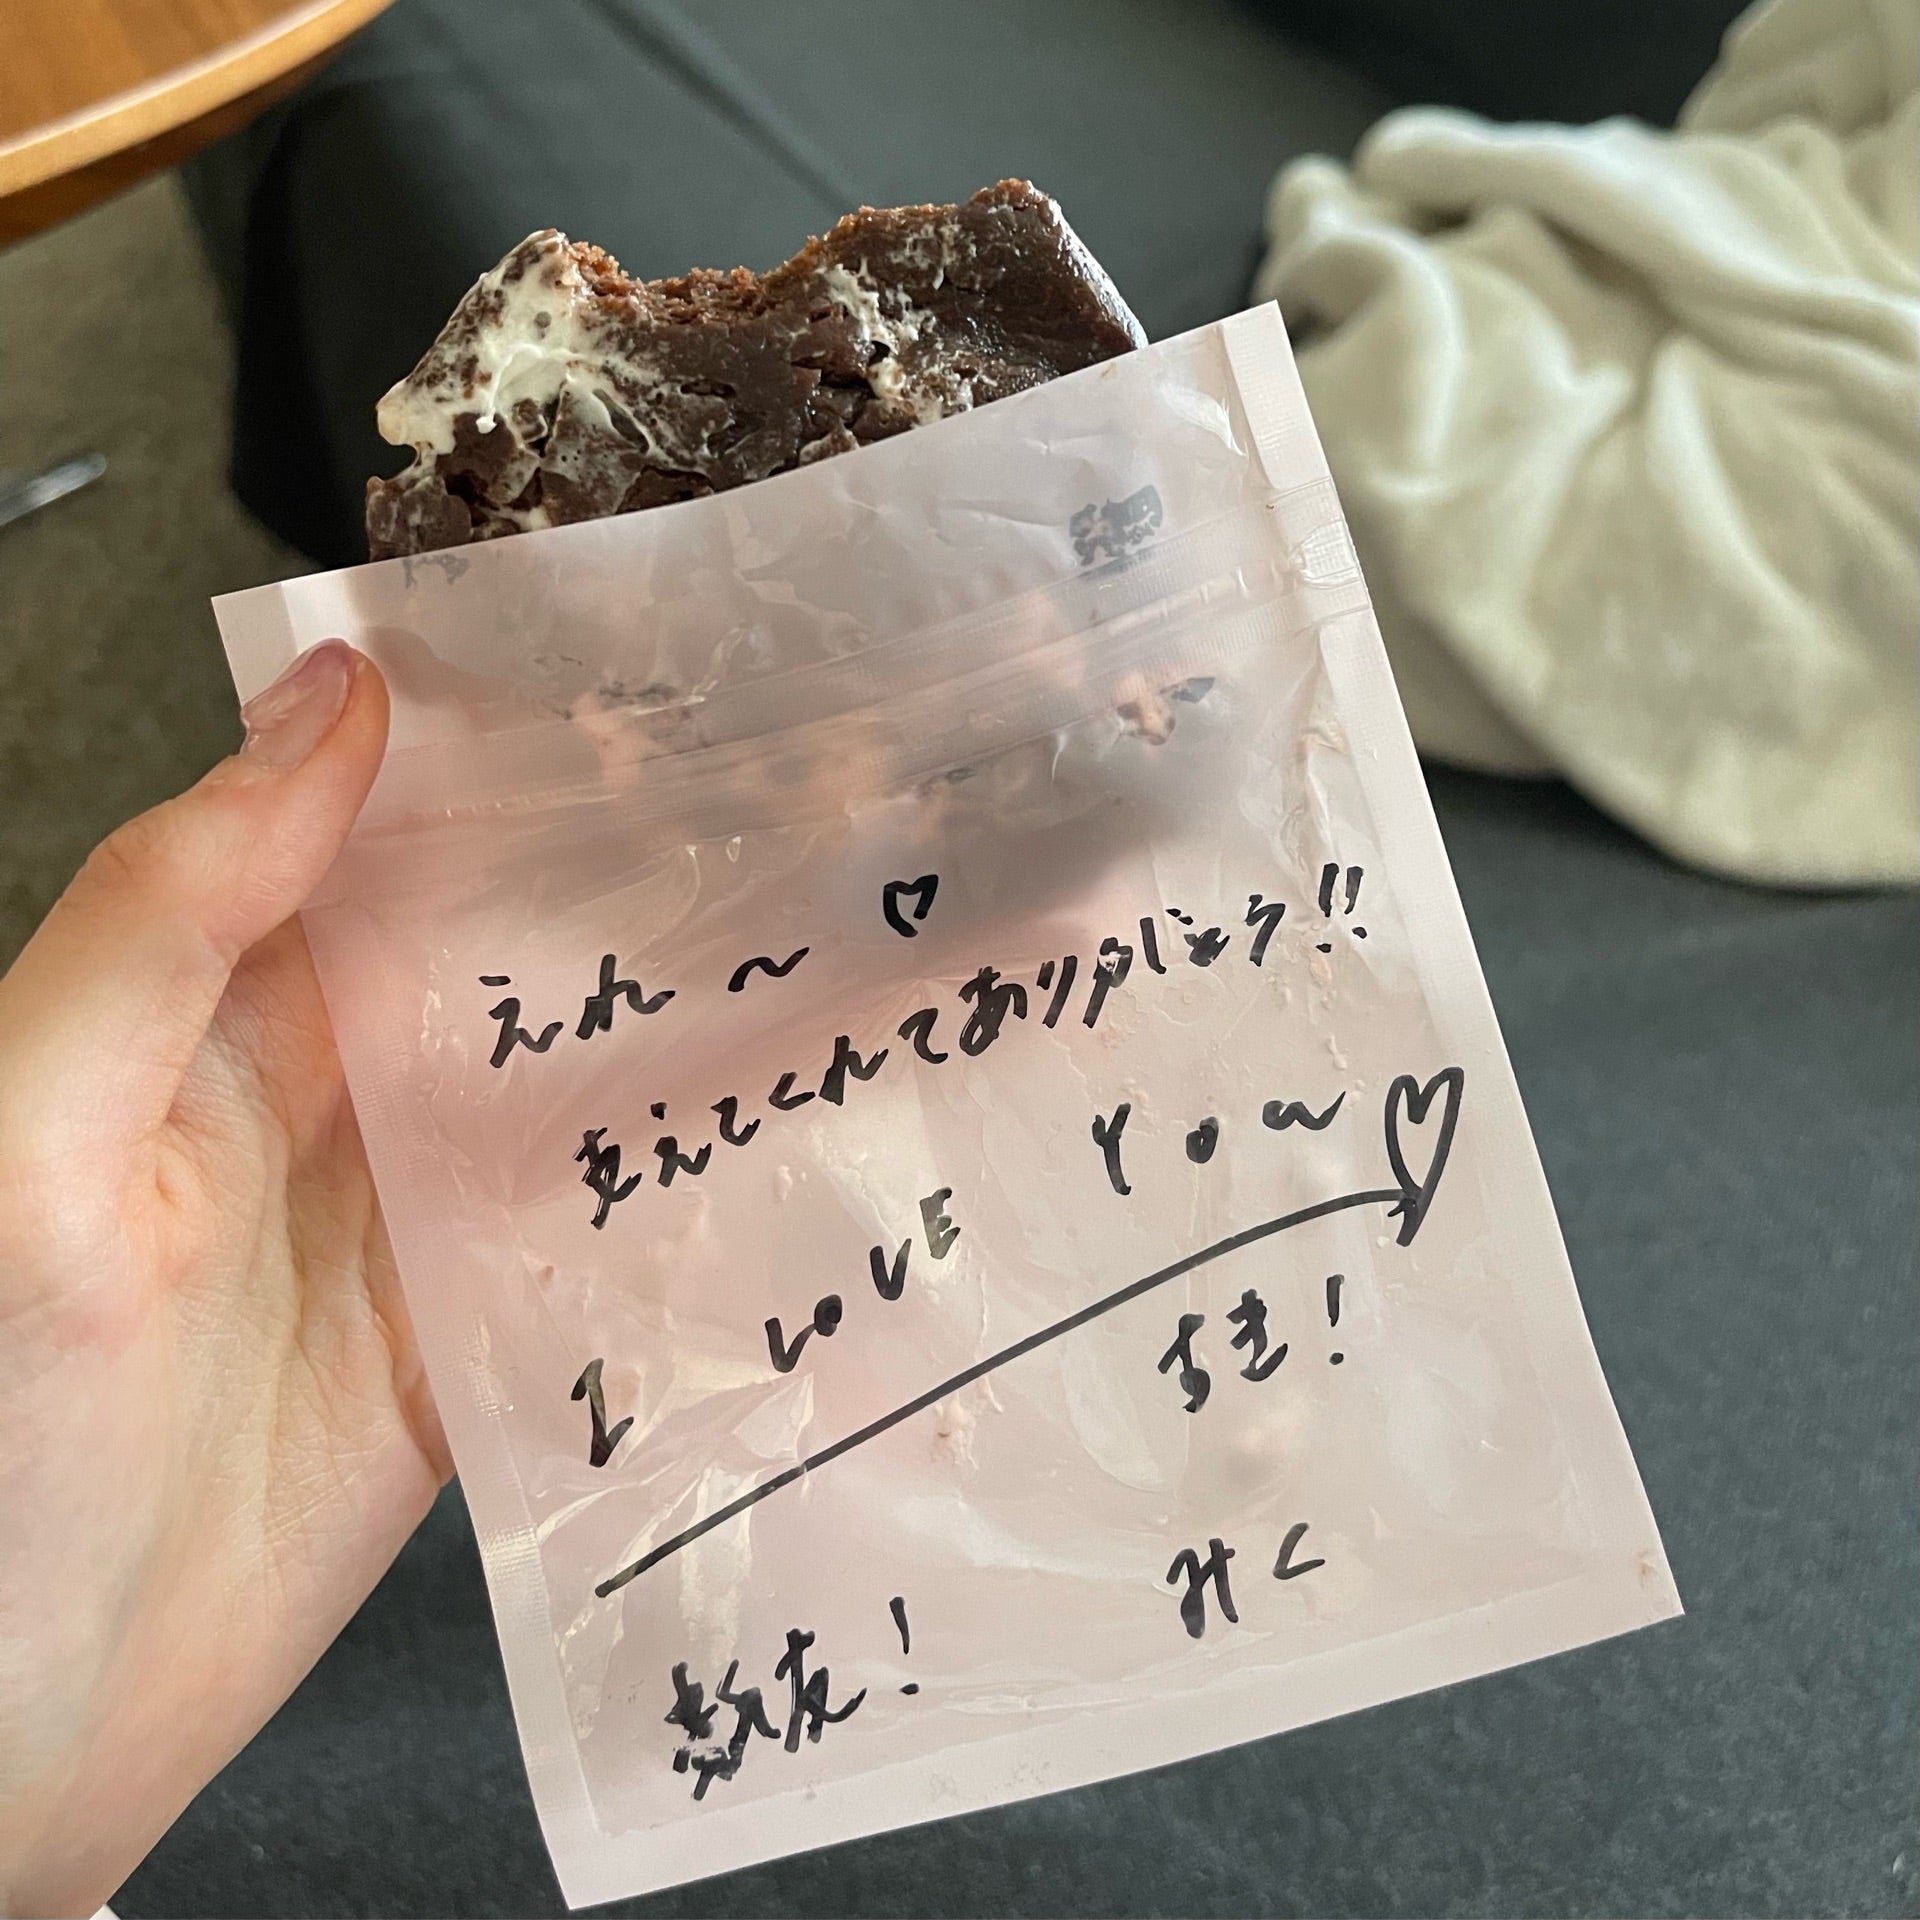 えれ〜♡
支えてくれてありがとう!!
I LOVE YOU♡
すき!
みく
親友!